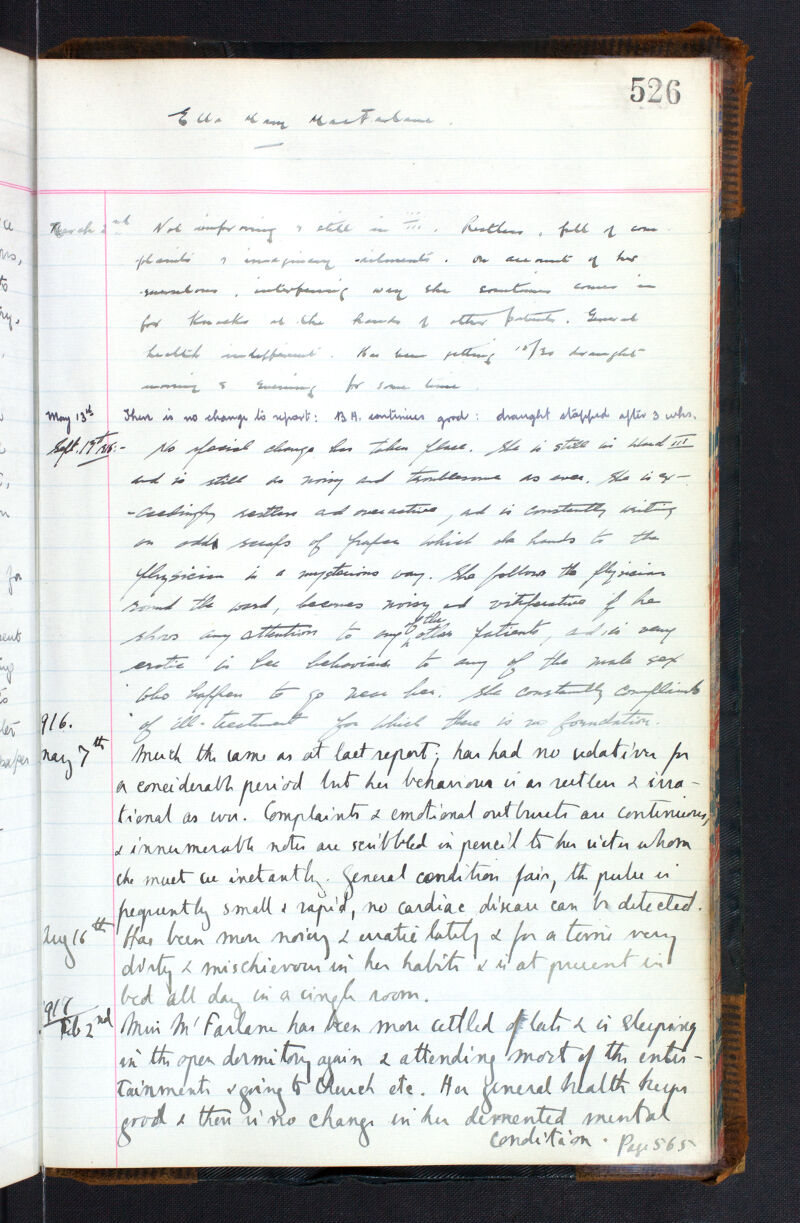 526
Ella Mary MacFarlane.
March 2nd Not improving & still in III. Restless, full of com-
plaints & imaginary ailments. On account of her
querulous, interfering way she sometimes comes in
for knocks at the hands of other patients. General
health indifferent. Has been getting 10/30 draught
morning & evening for some time.
May 13th There is no change to report: B.A. continues good: draught stopped after 3 wks.
Sept. 19th 1915:- No special change has taken place. She is still in Ward III
and is still as noisy and troublesome as ever. She is ex-
-ceedingly restless and overactive, and is constantly writing
on odd scraps of paper which she hands to the
physician in a mysterious way. She follows the physician
round the ward, becomes noisy and vituperative if he
shows any attention to any of the other patients, and is very
erotic in her behaviour to any of the male sex
who happen to go near her. She constantly complains
of ill-treatment for which there is no foundation.
916.
May 7th Much the same as at last report; has had no sedatives for
a considerable period but her behaviour is as restless & irra-
tional as ever. Complaints & emotional outbursts are continuous,
& innumerable notes are scribbled in pencil to her sister whom
she must see instantly. General condition fair, the pulse is
frequently small & rapid, no cardiac disease can be detected.
Aug 16th Has been more noisy & erratic lately & for a time very
dirty & mischievous in her habits & is at present in
bed all day in a single room.
918
Feb 2nd Miss McFarlane has been more settled of late & is sleeping
in the open dormitory again & attending most of the enter-
tainments & going to Church etc. Her general health keeps
good & there is no change in her demented mental
condition. Page 565